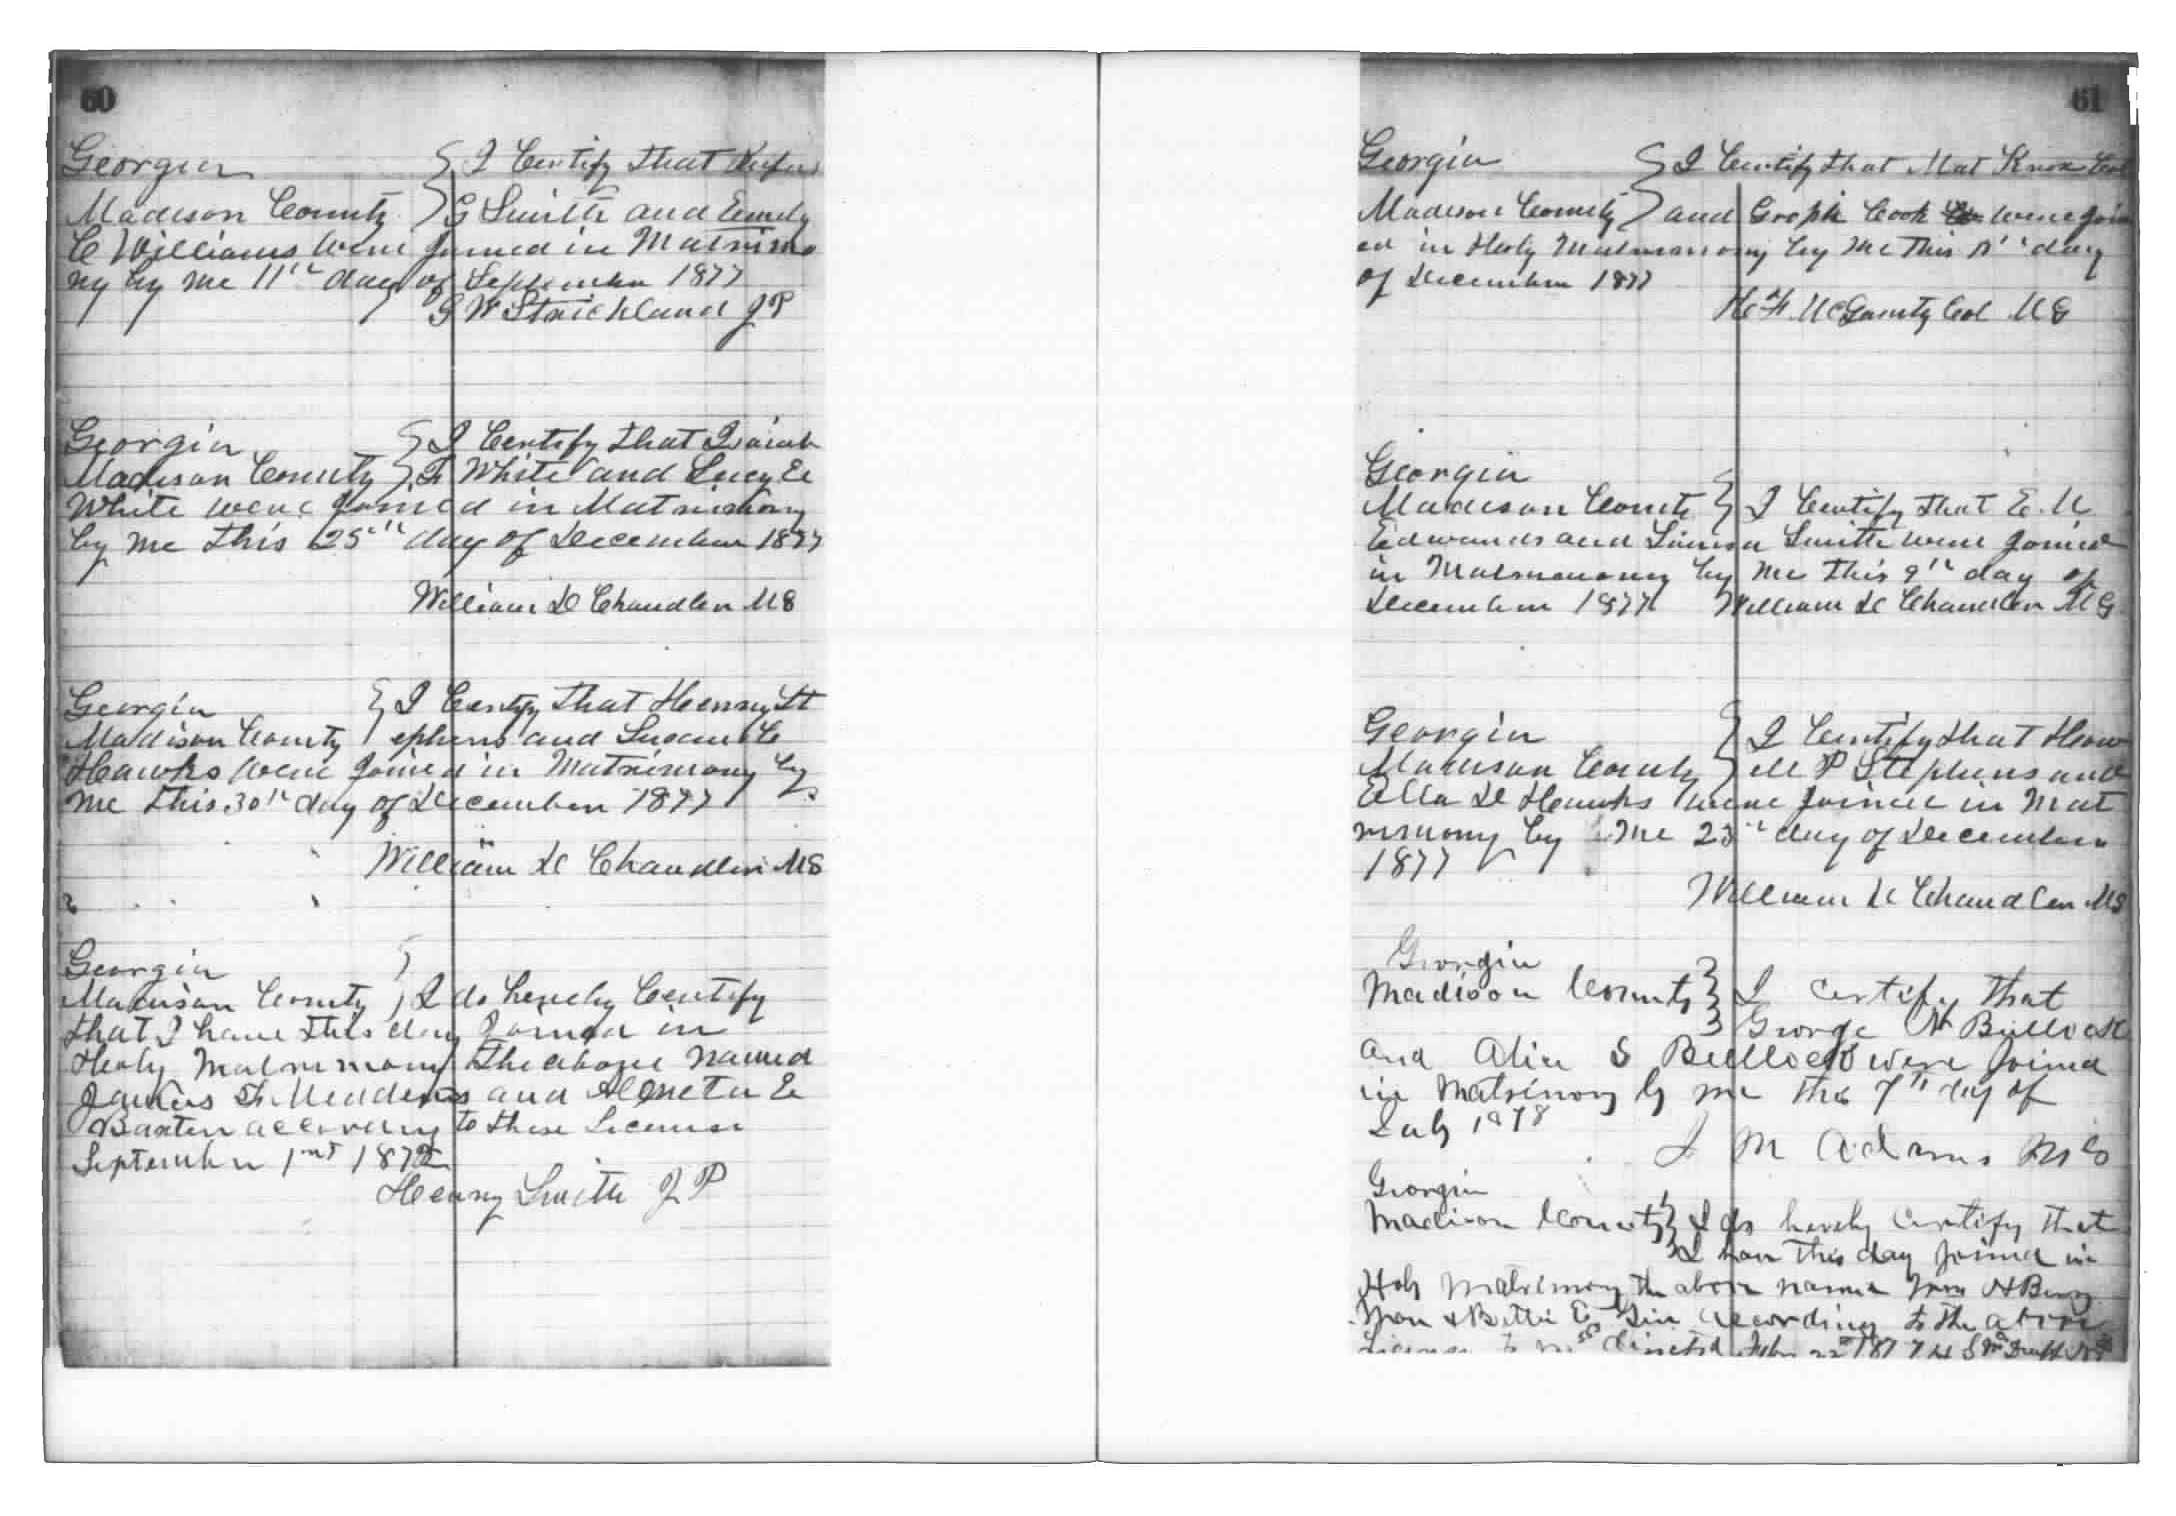 60
Georgia } I Certify that Rufus
Madison County } G Smith and Emily
C Williams were joined in Matrimo
ny by me 11th day of September 1877
G W Strickland J P
Georgia } I Certify that Isaiah
Madison County } F White and Lucy E
White were joined in Matrimony
by me this 25th day of December 1877
William D Chandler M G
Georgia } I Certify that Henry St
Madison County } ephens and Susan C
Hawks were joined in Matrimony by
me this 30th day of December 1877
William D Chandler M G
Georgia }
Madison County } I do hereby Certify
that I have this day joined in
Holy Matrimony the above named
James F and E
Baxter according to these License
September 1st 187
Henry Smith J P
61
Georgia } I Certify that Mat Knox Col
Madison County } and Cook were join
ed in Holy Matrimony by me this day
of December 1877
McGarity Col M G
Georgia
Madison County } I Certify that E. M
Edwards and Smith were joined
in Matrimony by me this 9th day of
December 1877 William D Chandler M G
Georgia } I Certify that How
Madison County } ell P Stephens and
Ella D Hawks were joined in Mat
rimony by me 23rd day of December
1877
William D Chandler M G
Georgia
Madison County } I certify that
George Bullock
and Alice S Bullock were joined
in Matrimony by me this 7th day of
July 1878
J M Adams M G
Georgia
Madison County } I do hereby certify that
I have this day joined in
Holy Matrimony the above named Wm H Berry
man & Bettie E according to the above
License to me directed